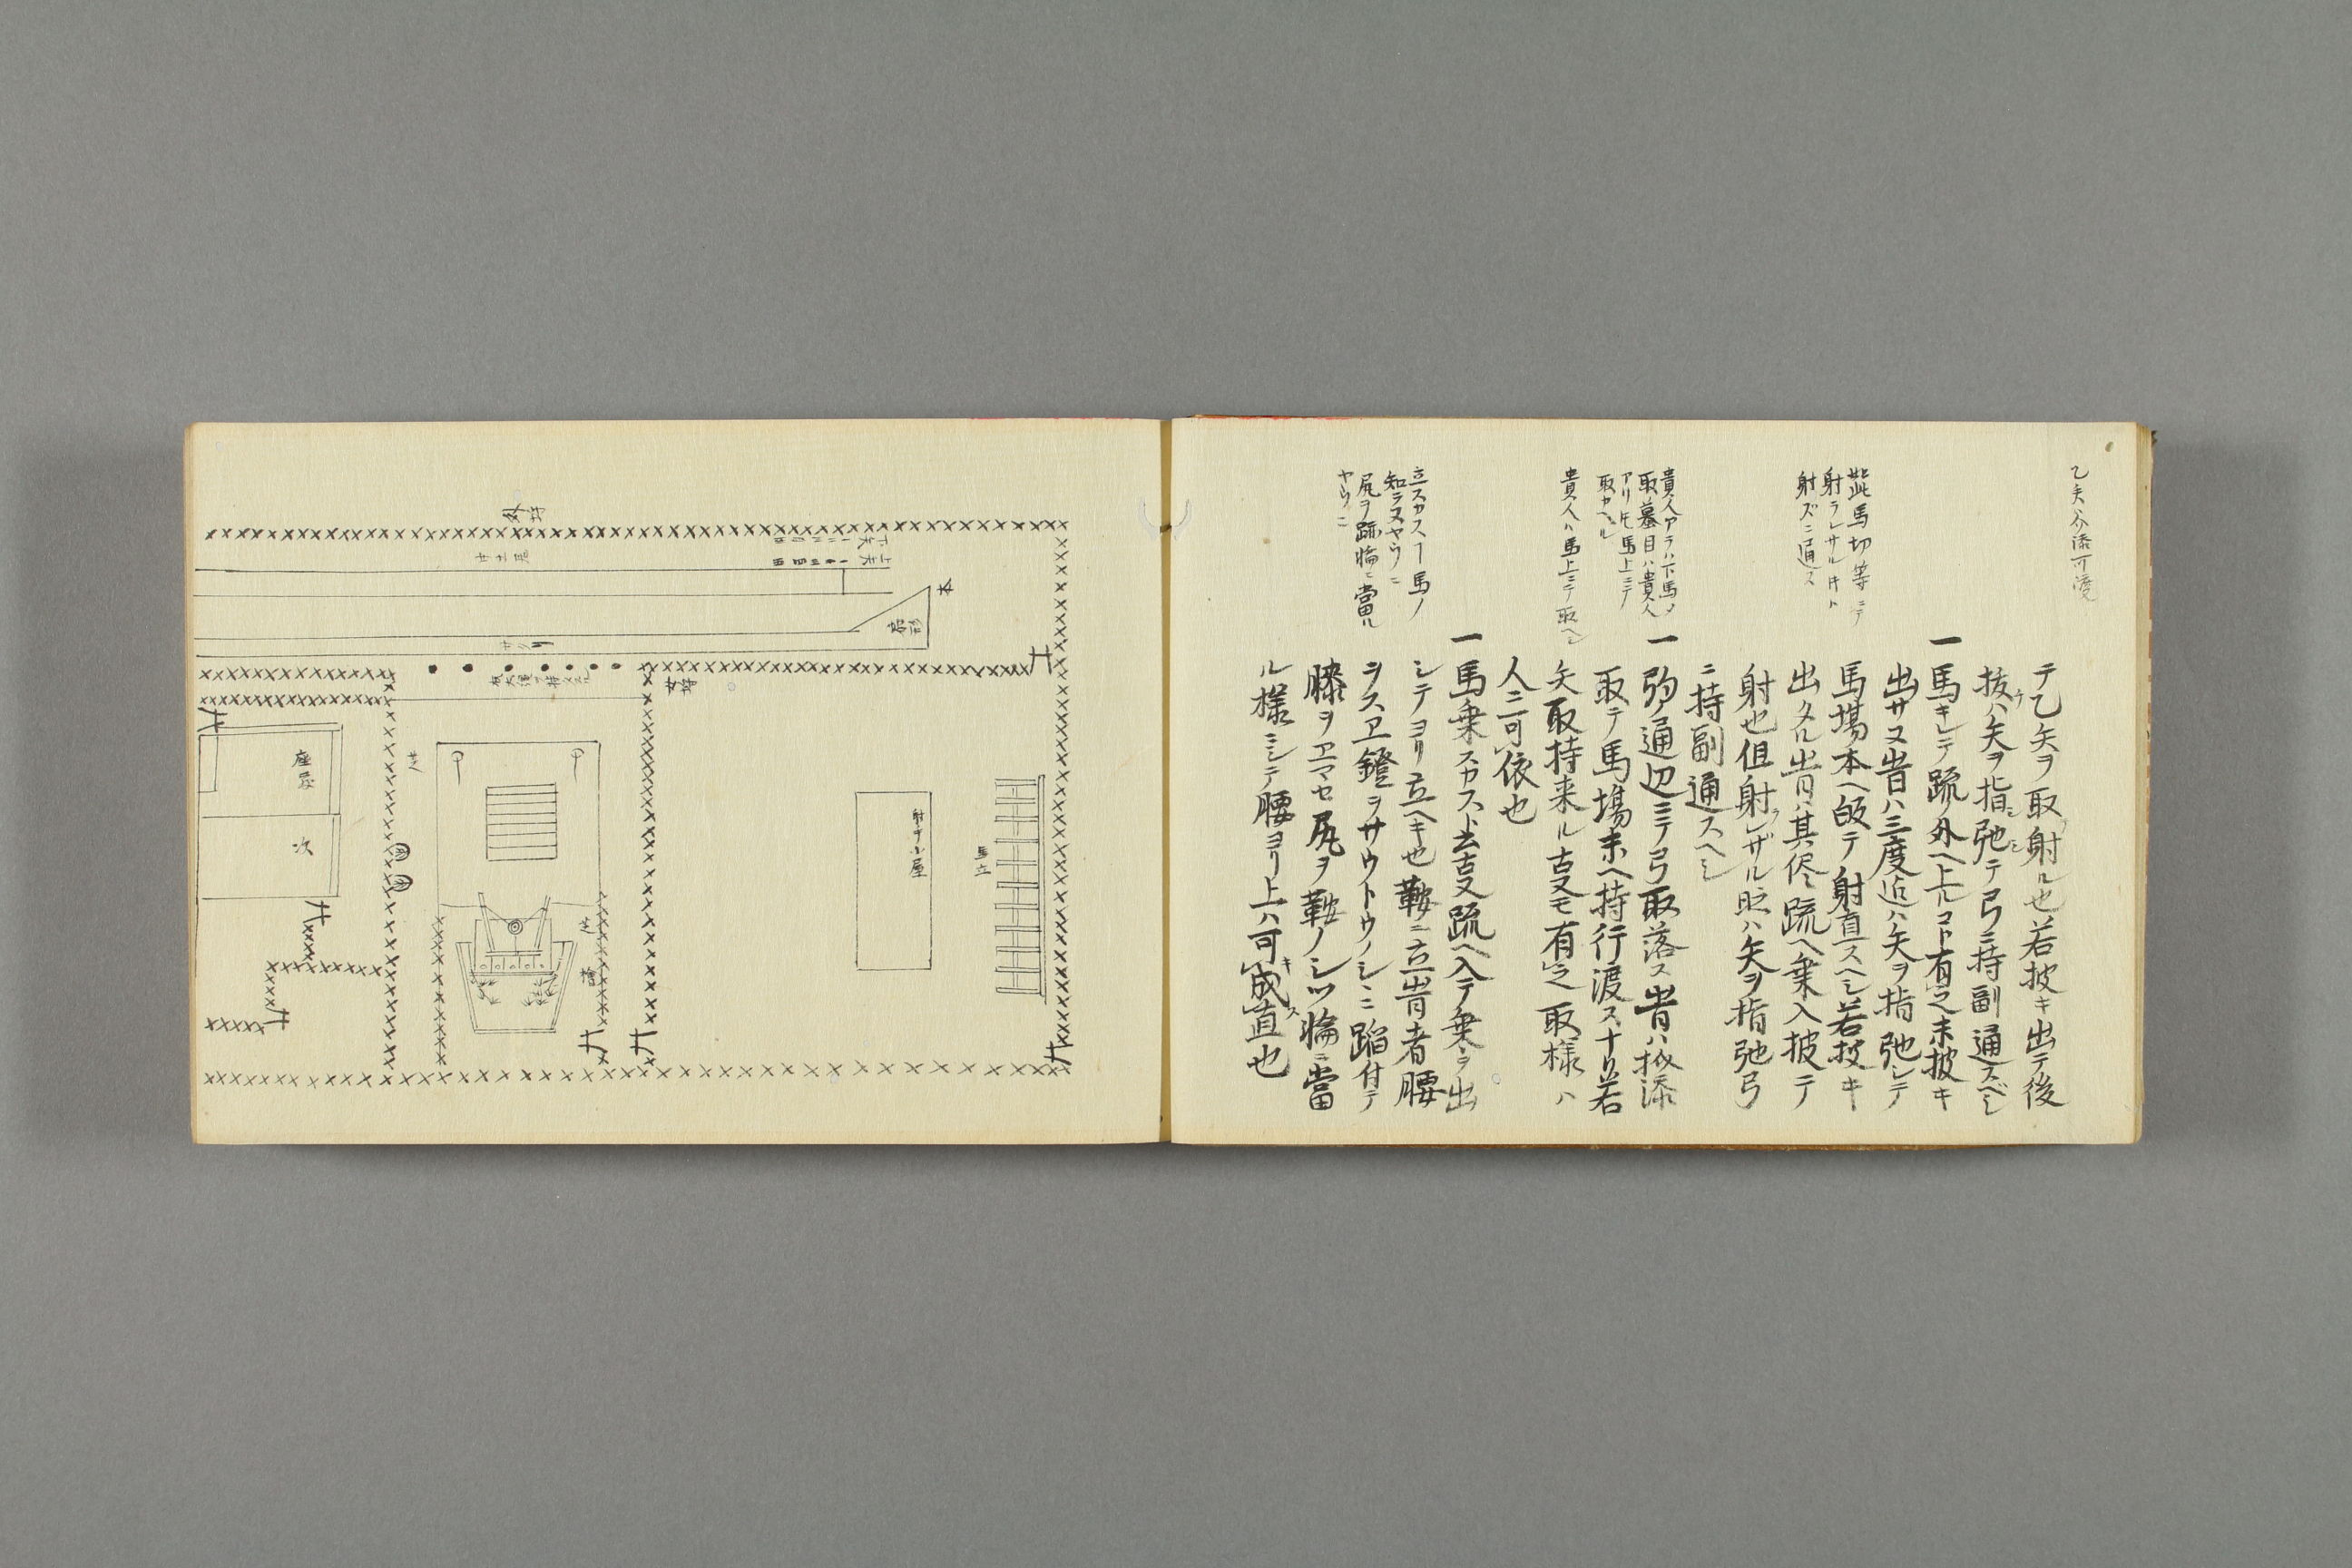 乙矢介添可渡
テ乙矢ヲ取射ル也若披キ出テ後
抜ハ矢ヲ指弛テ弓ニ持副通スベシ
一馬キレテ疏ノ外ヘ上ルコト有之未披キ
出サヌ時ハ三度迄ハ矢ヲ指弛シテ
此馬切等ニテ
射ラレサル時ト
射ズニ通ス
馬場本ヘ皈テ射直スヘシ若披キ
出タル時ハ其侭疏ヘ乗入披テ
射也但射レザル時ハ矢ヲ指弛弓
ニ持副通スヘシ
貴人アラハ下馬ノ
取蟇目ハ貴人
アリ圧馬上ニテ
取カヘル
一弣ノ通辺ニテ弓取落ス時ハ扱添
取テ馬場末ヘ持行渡スナリ若
貴人ハ馬上ニテ取ヘシ
矢取持来ル古叓モ有之取様ハ
人ニ可依也
一馬乗スカスト云古叓疏ヘ入テ乗ラ出
立スカスヿ馬ノ
知ラヌヤウニ
尻ヲ跡輪ニ當ル
ヤウニ
シテヨリ立ヘキ也鞍ニ立時者腰
ヲスヱ鐙ヲサウトウノシニ蹈付テ
膝ヲヱマセ尻ヲ鞍ノシツ輪ニ當
ル様ニシテ腰ヨリ上ハ可成直也
外埒
下矢
上矢
本
扇形
サクリ
女埒
馬立
射手小屋
芝
座敷
次